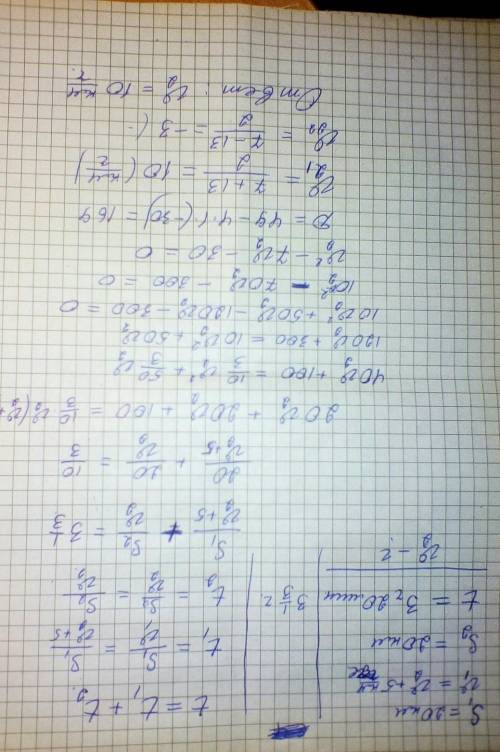 S₁ = 20 км
v₁ = v₂ + 5 км/ч
S₂ = 20 км
t = 3 ч 20 мин
3 1/3 ч.
v₂ - ?
t = t₁ + t₂
t₁ = S₁/v₁ = S₁/(v₂+5)
t₂ = S₂/v₂ = S₂/v₂
S₁/(v₂+5) + S₂/v₂ = 3 1/3
20/(v₂+5) + 20/v₂ = 10/3
20v₂ + 20v₂ + 100 = 10/3 v₂(v₂+
40v₂ + 100 = 10/3 v₂² + 50/3 v₂
120v₂ + 300 = 10v₂² + 50v₂
10v₂² + 50v₂ - 120v₂ - 300 = 0
10v₂² - 70v₂ - 300 = 0
v₂² - 7v₂ - 30 = 0
D = 49 - 4·1·(-30) = 169
v₂₁ = (7+13)/2 = 10 (км/ч)
v₂₂ = (7-13)/2 = -3 (-
Ответ: v₂ = 10 км/ч.